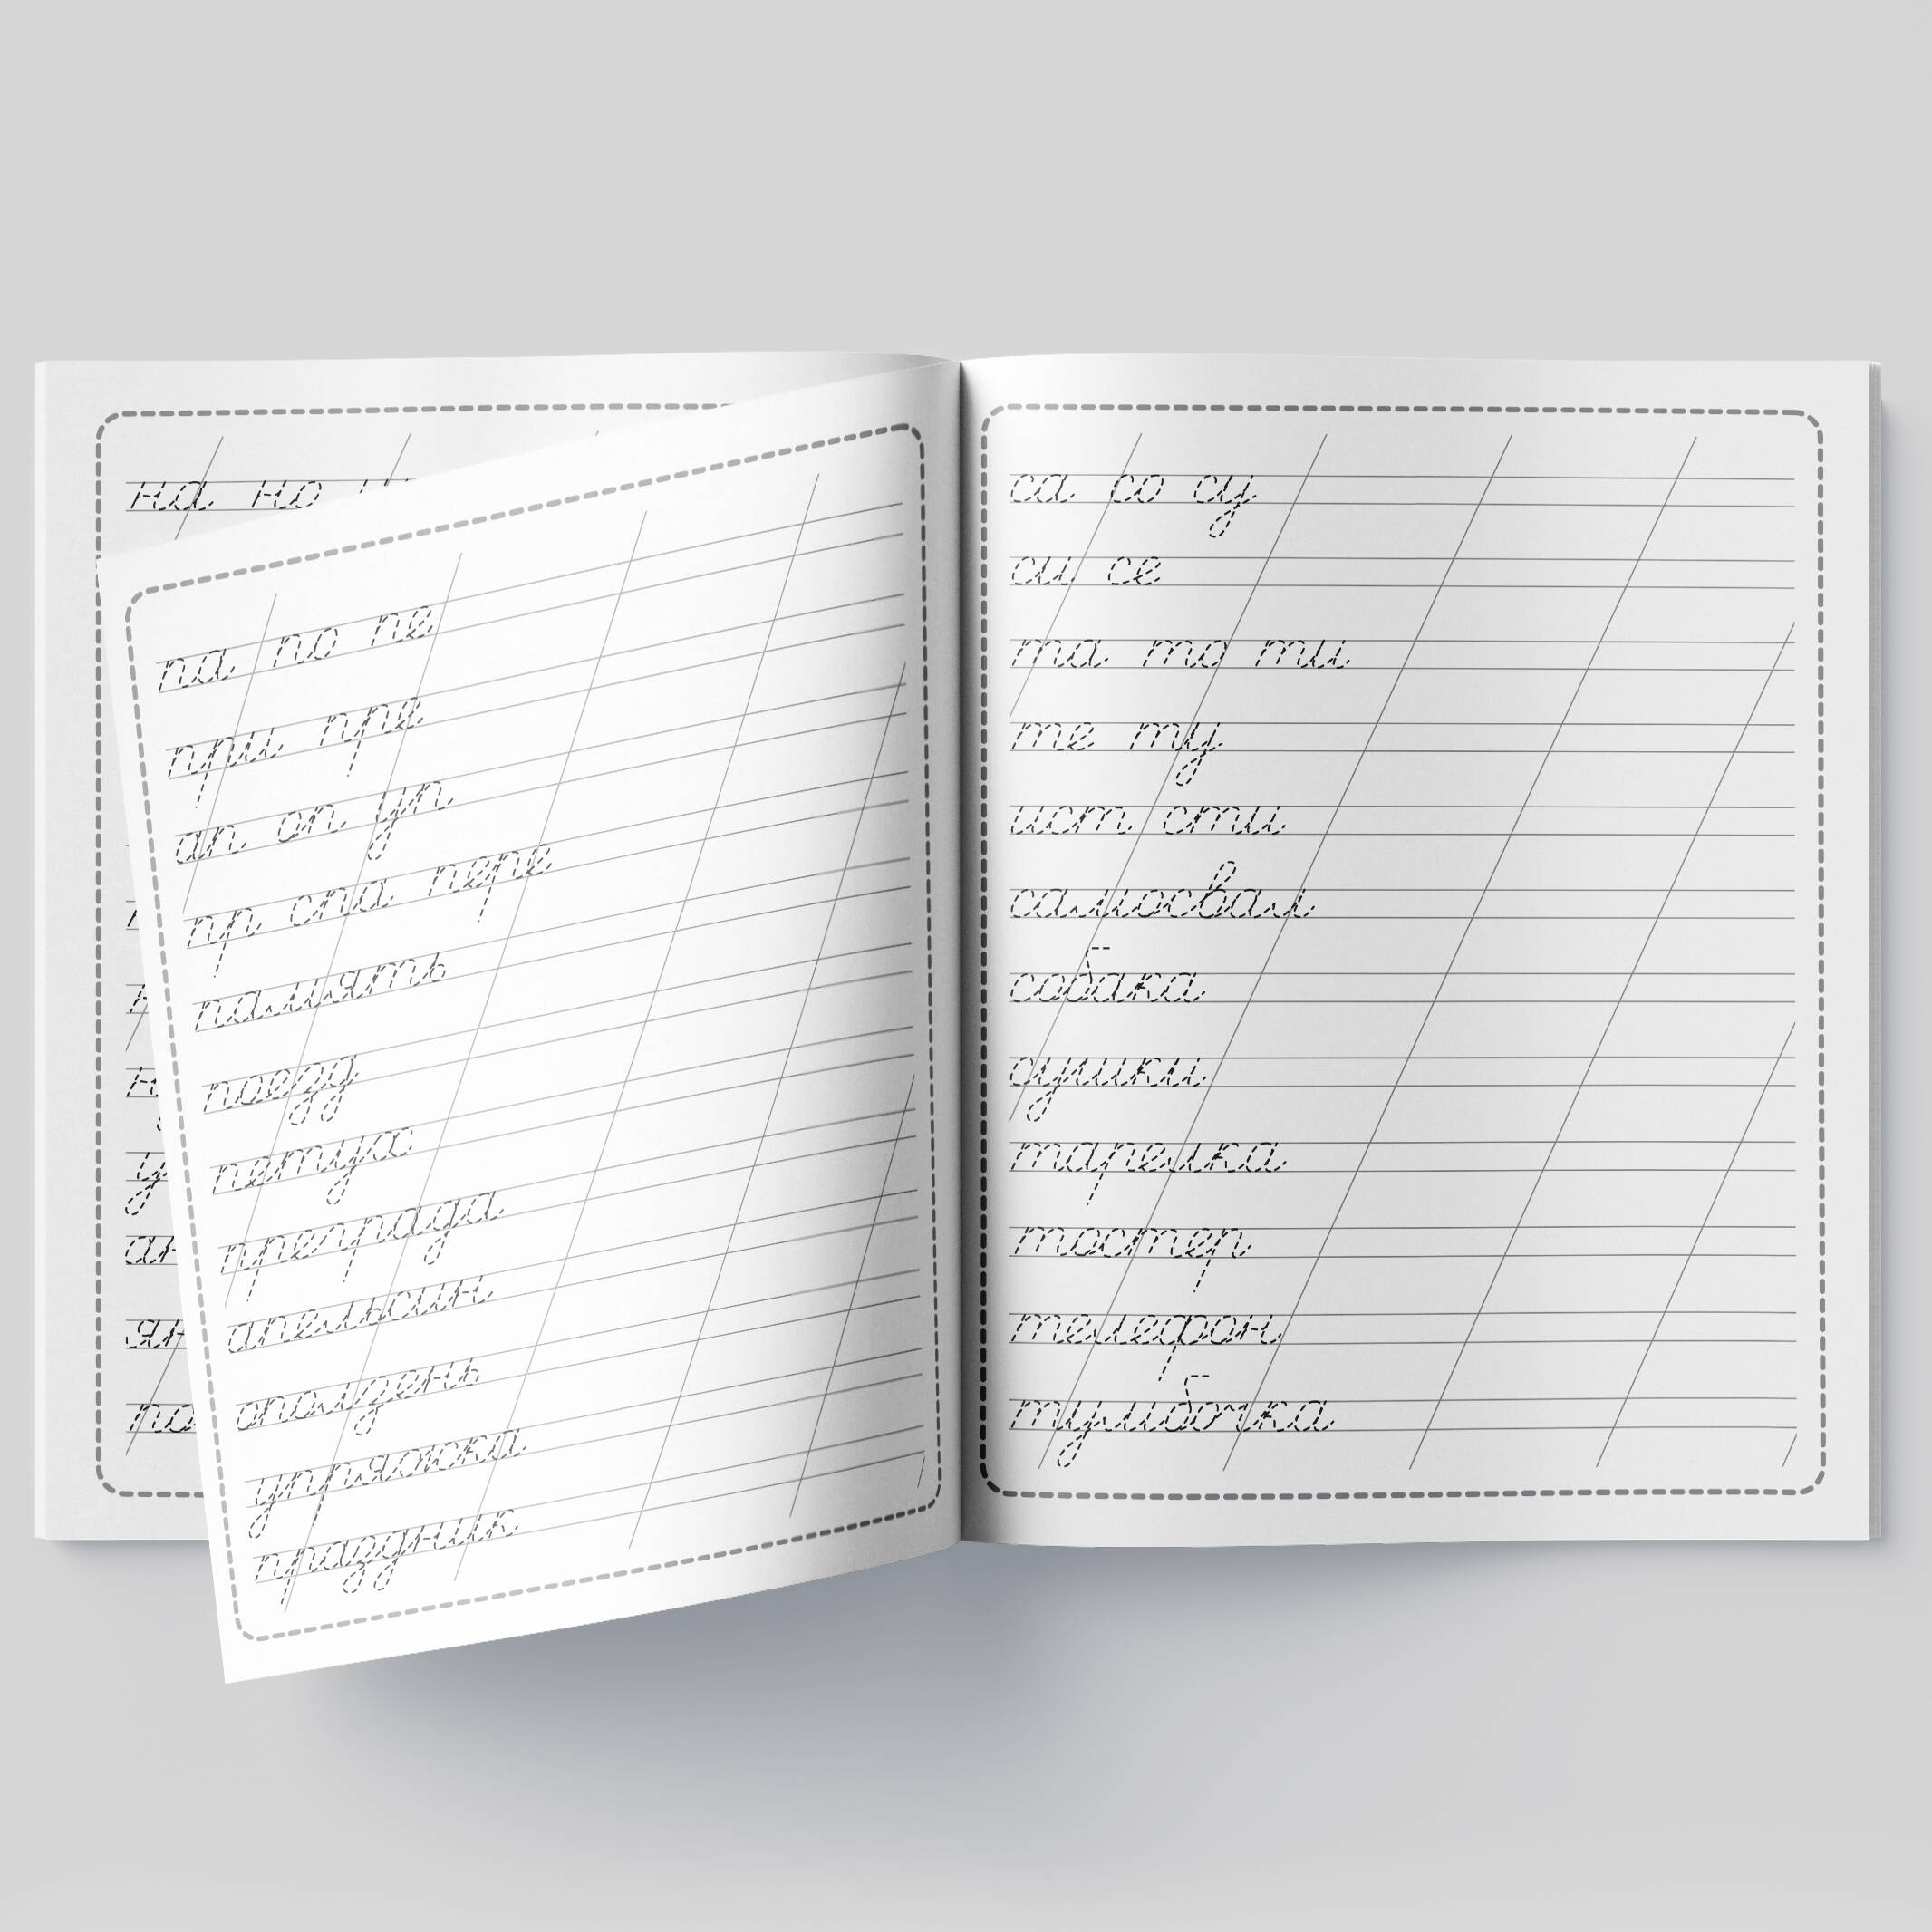 на но
па по пе
при пре
ап оп уп
пр спа пере
память
поезд
петух
преграда
апельсин
оползень
упряжка
праздник
са со су
си се
та то ти
те ту
ист сти
самосвал
собака
сумки
тарелка
тостер
телефон
тумбочка